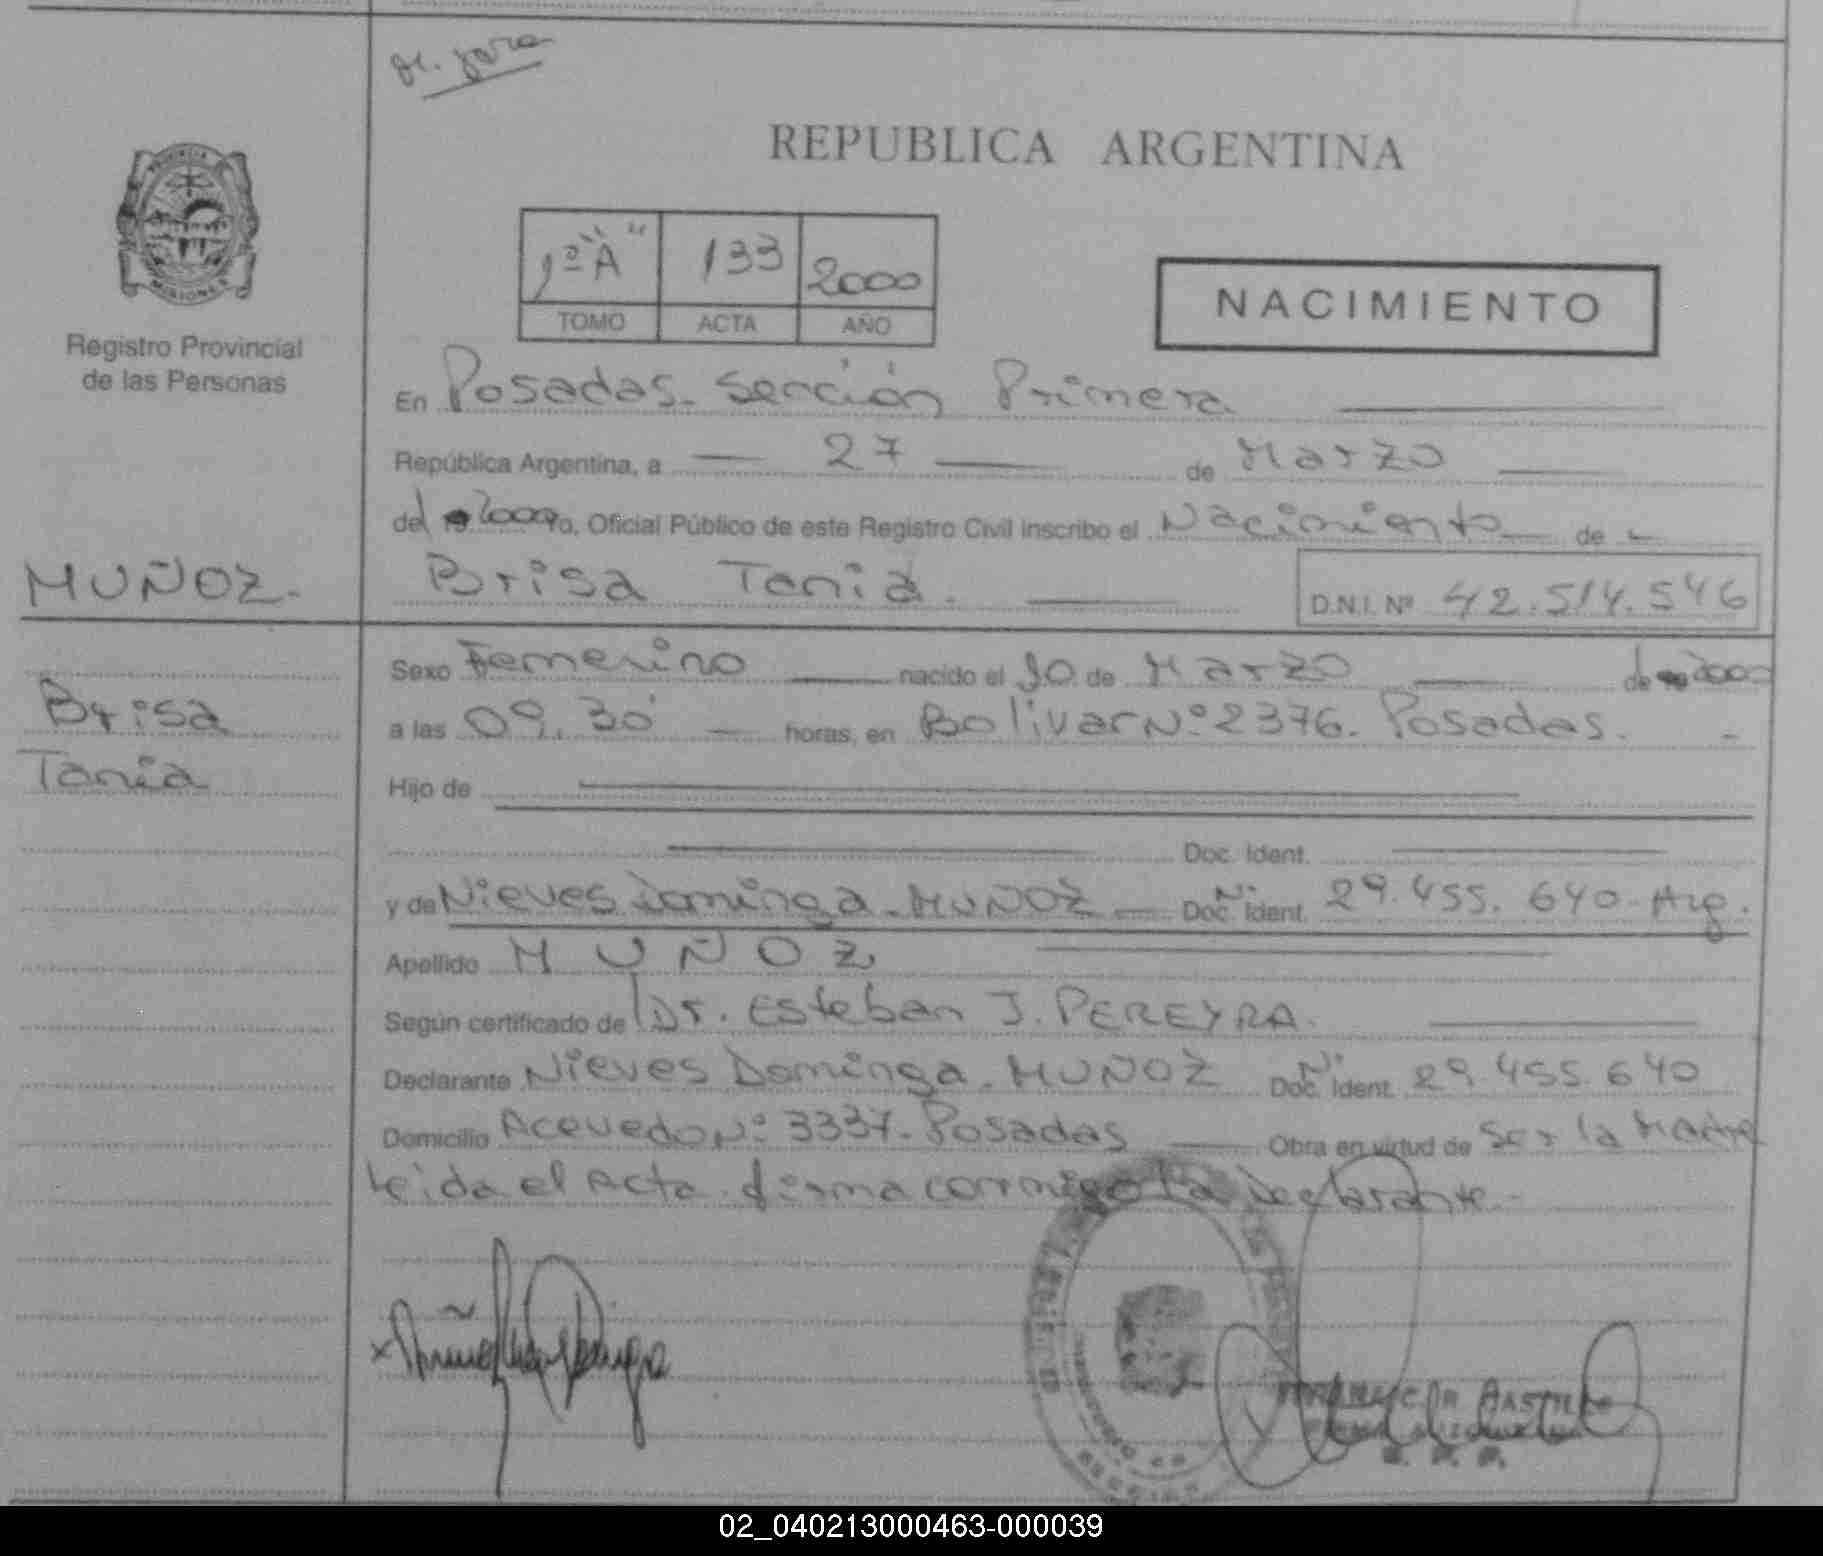 REPUBLICA ARGENTINA
PROVINCIA
MISIONES
Registro Provincial
de las Personas
1º "A" 133 2000
TOMO ACTA AÑO
NACIMIENTO
En Posadas. Sección Primera
República Argentina, a 27 de Marzo
del 2000 yo, Oficial Público de este Registro Civil inscribo el Nacimiento de
MUÑOZ. Brisa Tania. D.N.I. Nº 42.514.546
Sexo Femenino nacido el 10 de Marzo de 2000
Brisa a las 09,30 horas, en Bolivar Nº 2376. Posadas.
Tania Hijo de
Doc. Ident.
y de Nieves Dominga. MUÑOZ Doc. Ident. Ni. 29.455.640. Arg.
Apellido MUÑOZ
Según certificado de Dr. Esteban J. PEREYRA.
Declarante Nieves Dominga. MUÑOZ Doc. Ident. Ni 29.455.640
Domicilio Acevedo Nº 3337. Posadas Obra en virtud de Ser la Madre
Leida el Acta firma conmigo la Declarante.
02_040213000463-000039